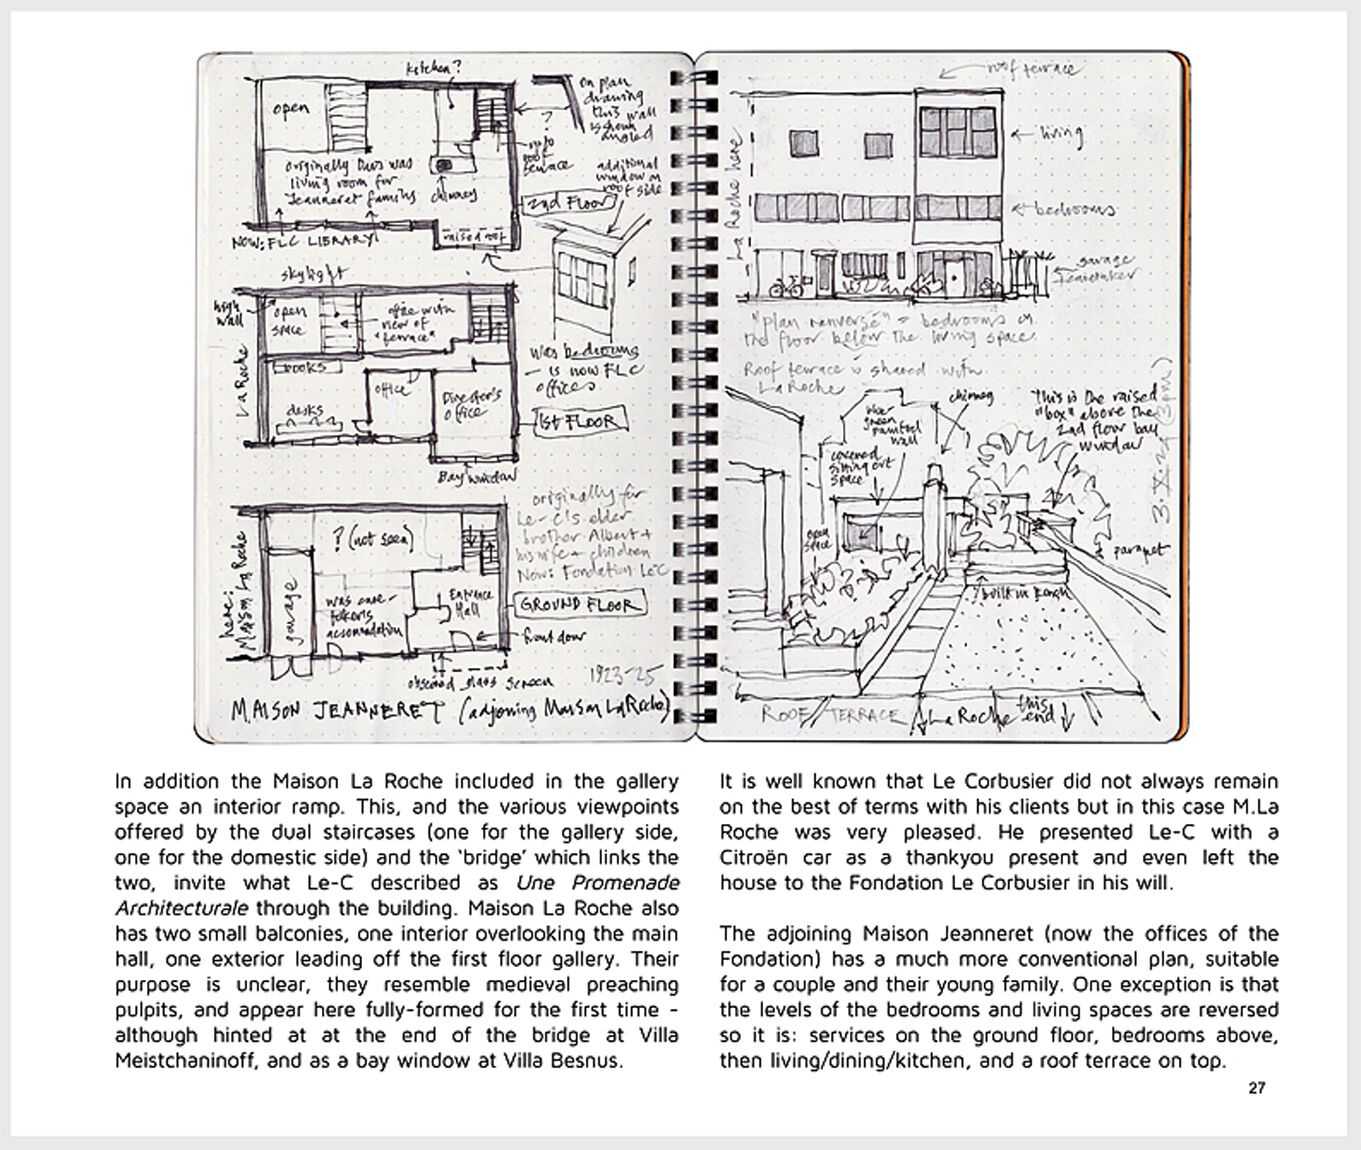 kitchen?
open
originally this was
living room for
Jeanneret family
chimney
up to
roof
terrace
?
on plan
drawing
this wall
is shown
angled
additional
window on
roof side
2nd Floor
NOW: FLC LIBRARY
raised roof
skylight
high
wall
open
space
office with
view of
"terrace"
La Roche
books
desks
office
Director's
office
was bedrooms
- is now FLC
offices
1st FLOOR
Bay window
originally for
Le-C's elder
brother Albert +
his wife + children
Now: Fondation Le C
here:
Maison La Roche
? (not seen)
garage
was care-
taker's
accomodation
Entrance
Hall
GROUND FLOOR
front door
obscured glass screen
1923-25
MAISON JEANNERET (adjoining Maison La Roche)
roof terrace
La Roche here
living
bedrooms
garage
"plan renversé" = bedrooms on
the floor below the living space.
Roof terrace is shared with
La Roche
chimney
green
painted
wall
covered
sitting out
space
open
space
This is the raised
"box" above the
2nd floor bay
window
parapet
built in bench
ROOF TERRACE
La Roche this
end
In addition the Maison La Roche included in the gallery
space an interior ramp. This, and the various viewpoints
offered by the dual staircases (one for the gallery side,
one for the domestic side) and the ‘bridge’ which links the
two, invite what Le-C described as Une Promenade
Architecturale through the building. Maison La Roche also
has two small balconies, one interior overlooking the main
hall, one exterior leading off the first floor gallery. Their
purpose is unclear, they resemble medieval preaching
pulpits, and appear here fully-formed for the first time -
although hinted at at the end of the bridge at Villa
Meistchaninoff, and as a bay window at Villa Besnus.
It is well known that Le Corbusier did not always remain
on the best of terms with his clients but in this case M.La
Roche was very pleased. He presented Le-C with a
Citroën car as a thankyou present and even left the
house to the Fondation Le Corbusier in his will.
The adjoining Maison Jeanneret (now the offices of the
Fondation) has a much more conventional plan, suitable
for a couple and their young family. One exception is that
the levels of the bedrooms and living spaces are reversed
so it is: services on the ground floor, bedrooms above,
then living/dining/kitchen, and a roof terrace on top.
27